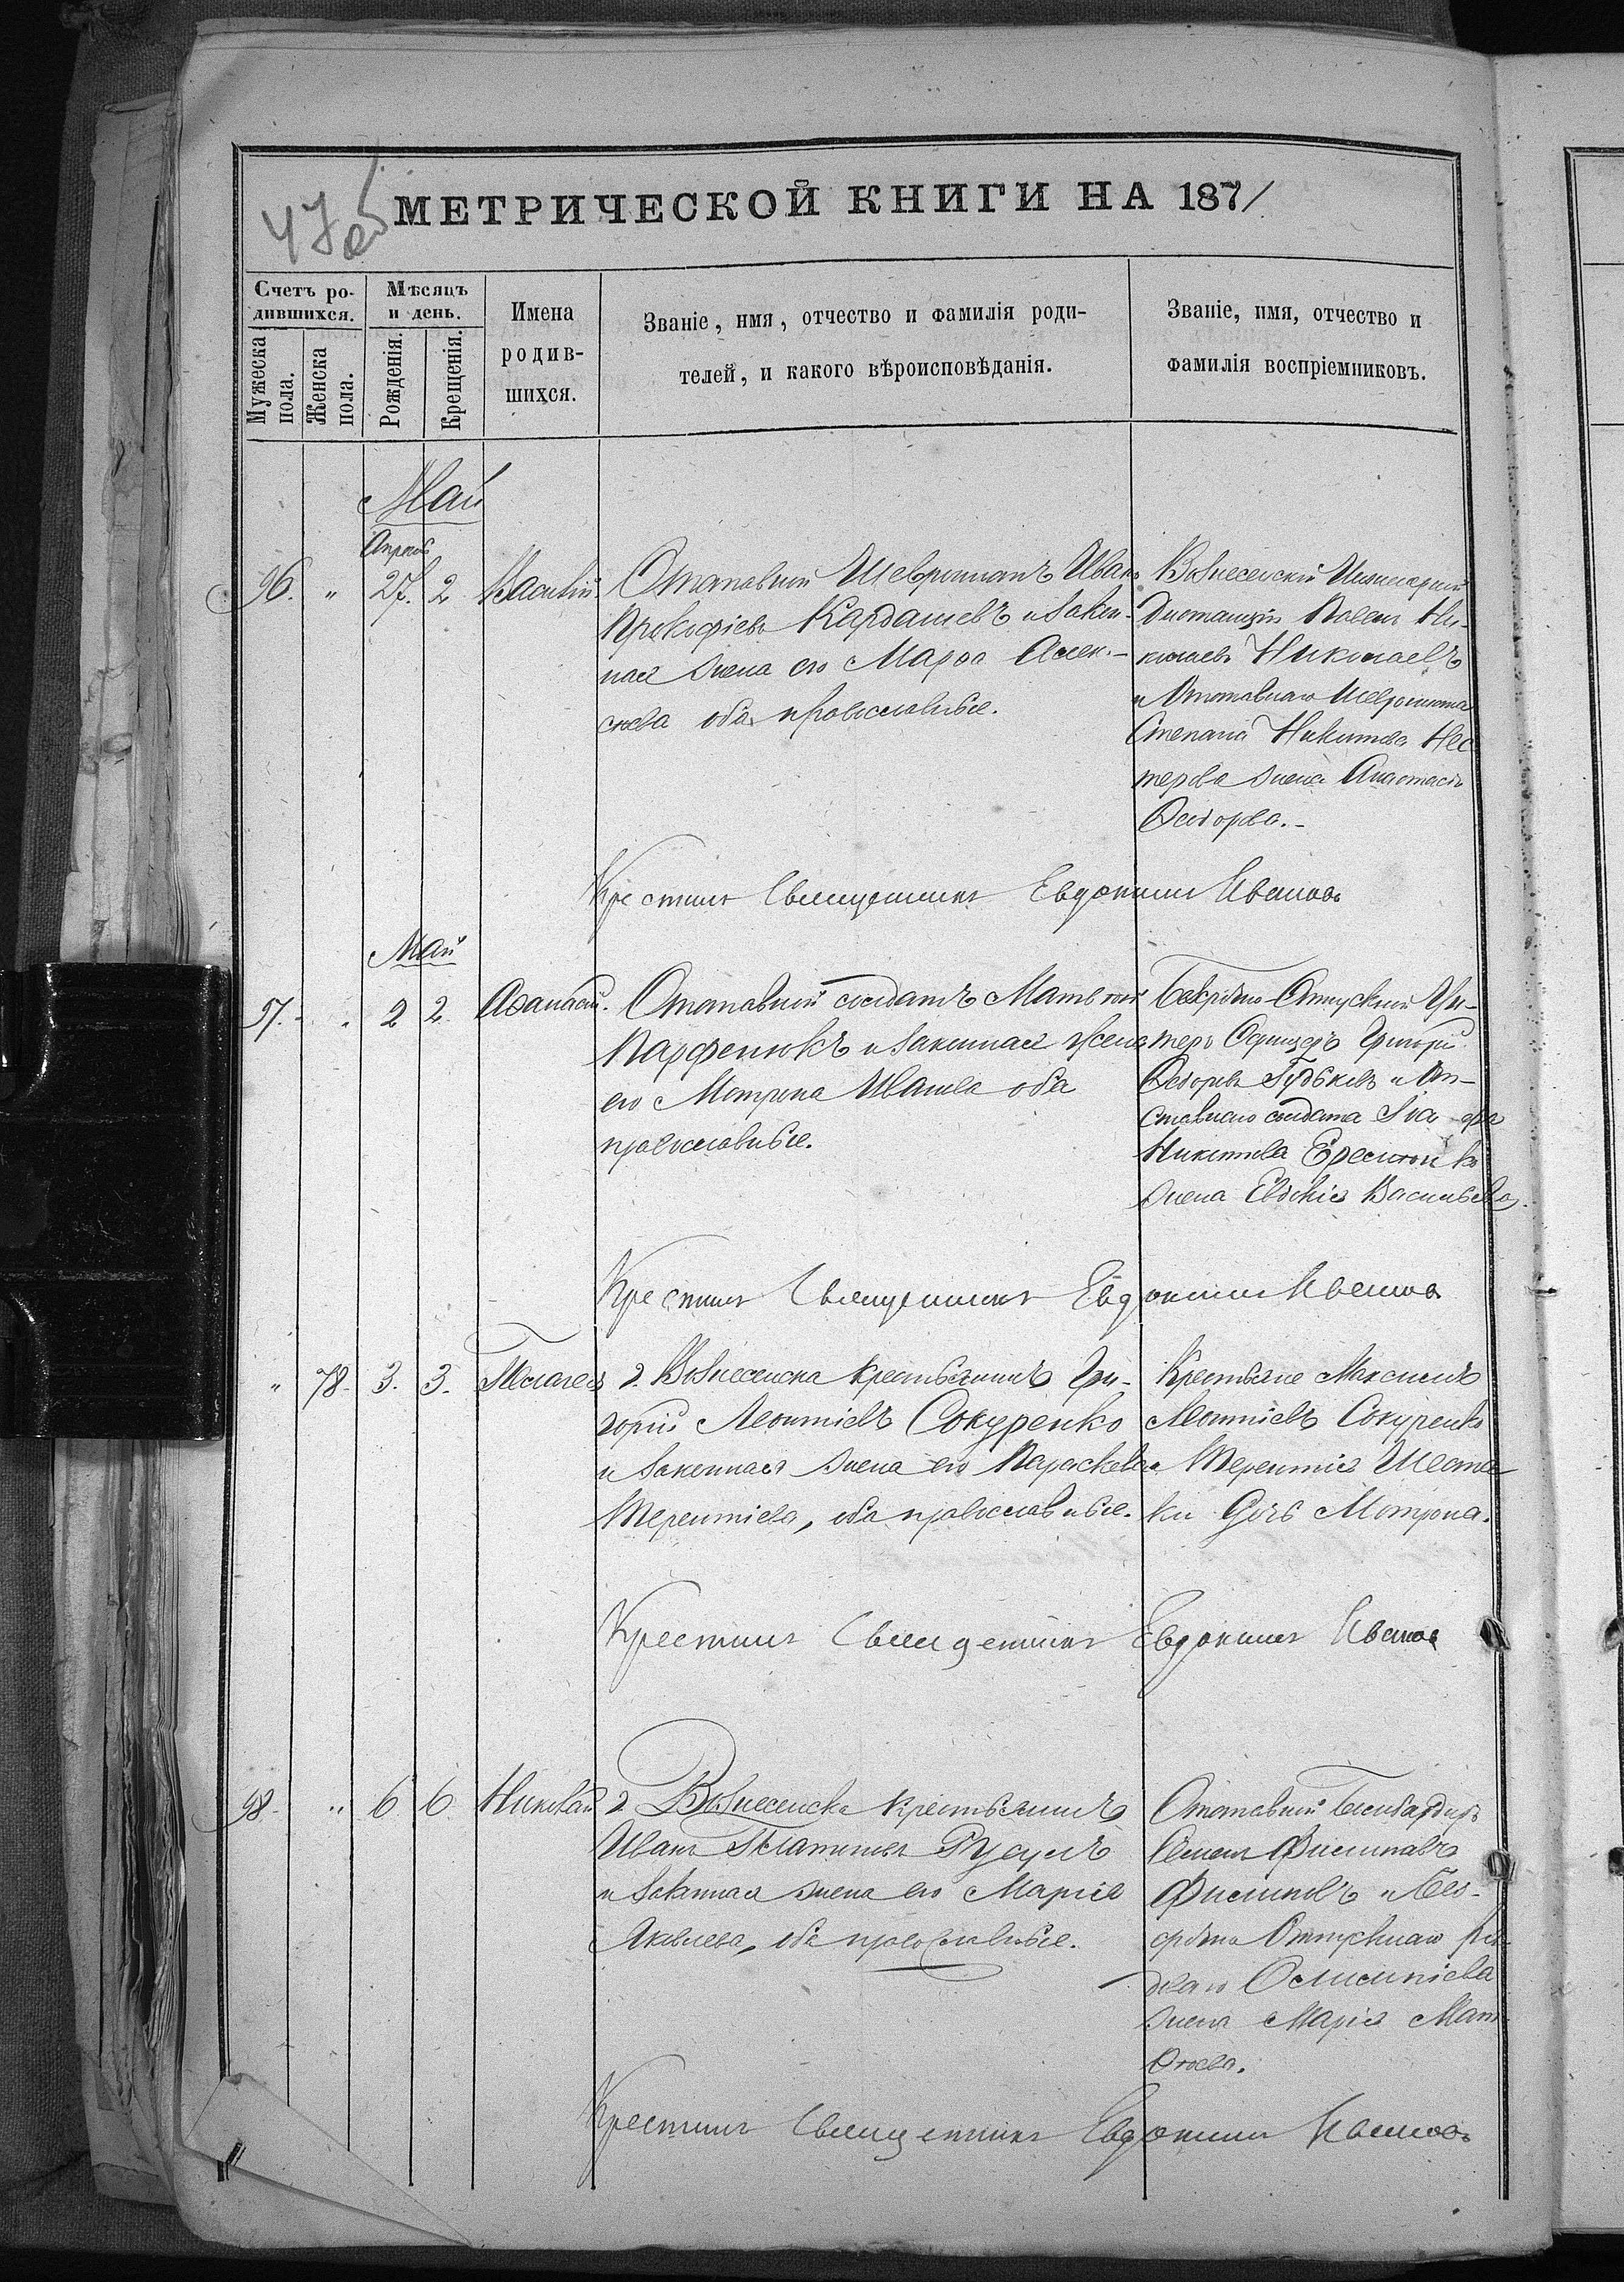 47 об
МЕТРИЧЕСКОЙ КНИГИ НА 1871
Счетъ ро-
дившихся.
Мужеска пола.
Женска пола.
Мѣсяцъ
и день.
Рожденія.
Крещенія.
Имена
родив-
шихся.
Званіе, имя, отчество и фамилія роди-
телей, и какого вѣроисповѣданія.
Званіе, имя, отчество и
фамилія воспріемниковъ.
Май
Апрѣль
96. " 27. 2 Василій.
Отставной Шевронистъ Иванъ
Прокофіевъ Кардашевъ и закон-
ная жена его Марѳа Алек-
сѣева оба православные.
Вознесенскій Инженерной
Дистанціи Павелъ Ни-
колаевъ Николаевъ
и Отставнаго Шеврониста
Степана Никитова Нес
терова жена Анастасія
Ѳедорова.-
Крестилъ Священникъ Евдокимъ Ивановъ
Май
97. " 2 2 Аѳанасій.
Отставной солдатъ Матвѣй
Парфенюкъ и законная жена
его Матрона Иванова оба
православные.
Безсрочно-Отпускной Ун-
теръ Офицеръ Григорій
Ѳедоровъ Гудьковъ и От-
ставнаго солдата
Никитова
жена Евдокія Васильева.
Крестилъ Священникъ Евдокимъ Ивановъ
" 78. 3. 3. Пелагея
г. Вознесенска крестьянинъ Гри-
горій Леонтіевъ Сокуренко
и законная жена его Параскева
Терентіева, оба православные.
Крестьяне Максимъ
Леонтіевъ Сокуренко
и Терентія Шеста-
ки дочь Мотрона.
Крестилъ Священникъ Евдокимъ Ивановъ
98. " 6 6 Николай
г. Вознесенска крестьянинъ
Иванъ Русулъ
и законная жена его Марія
Яковлева, оба православные.
Отставной Бомбардиръ
Филиповъ
Филиповъ и Без-
срочно Отпускнаго ря-
доваго
жена Марія Мат
ѳѣева.
Крестилъ Священникъ Евдокимъ Ивановъ